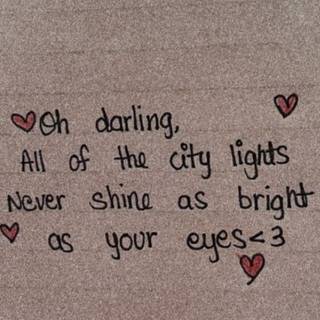 Oh darling,
All of the city lights
Never shine as bright
as your eyes<3